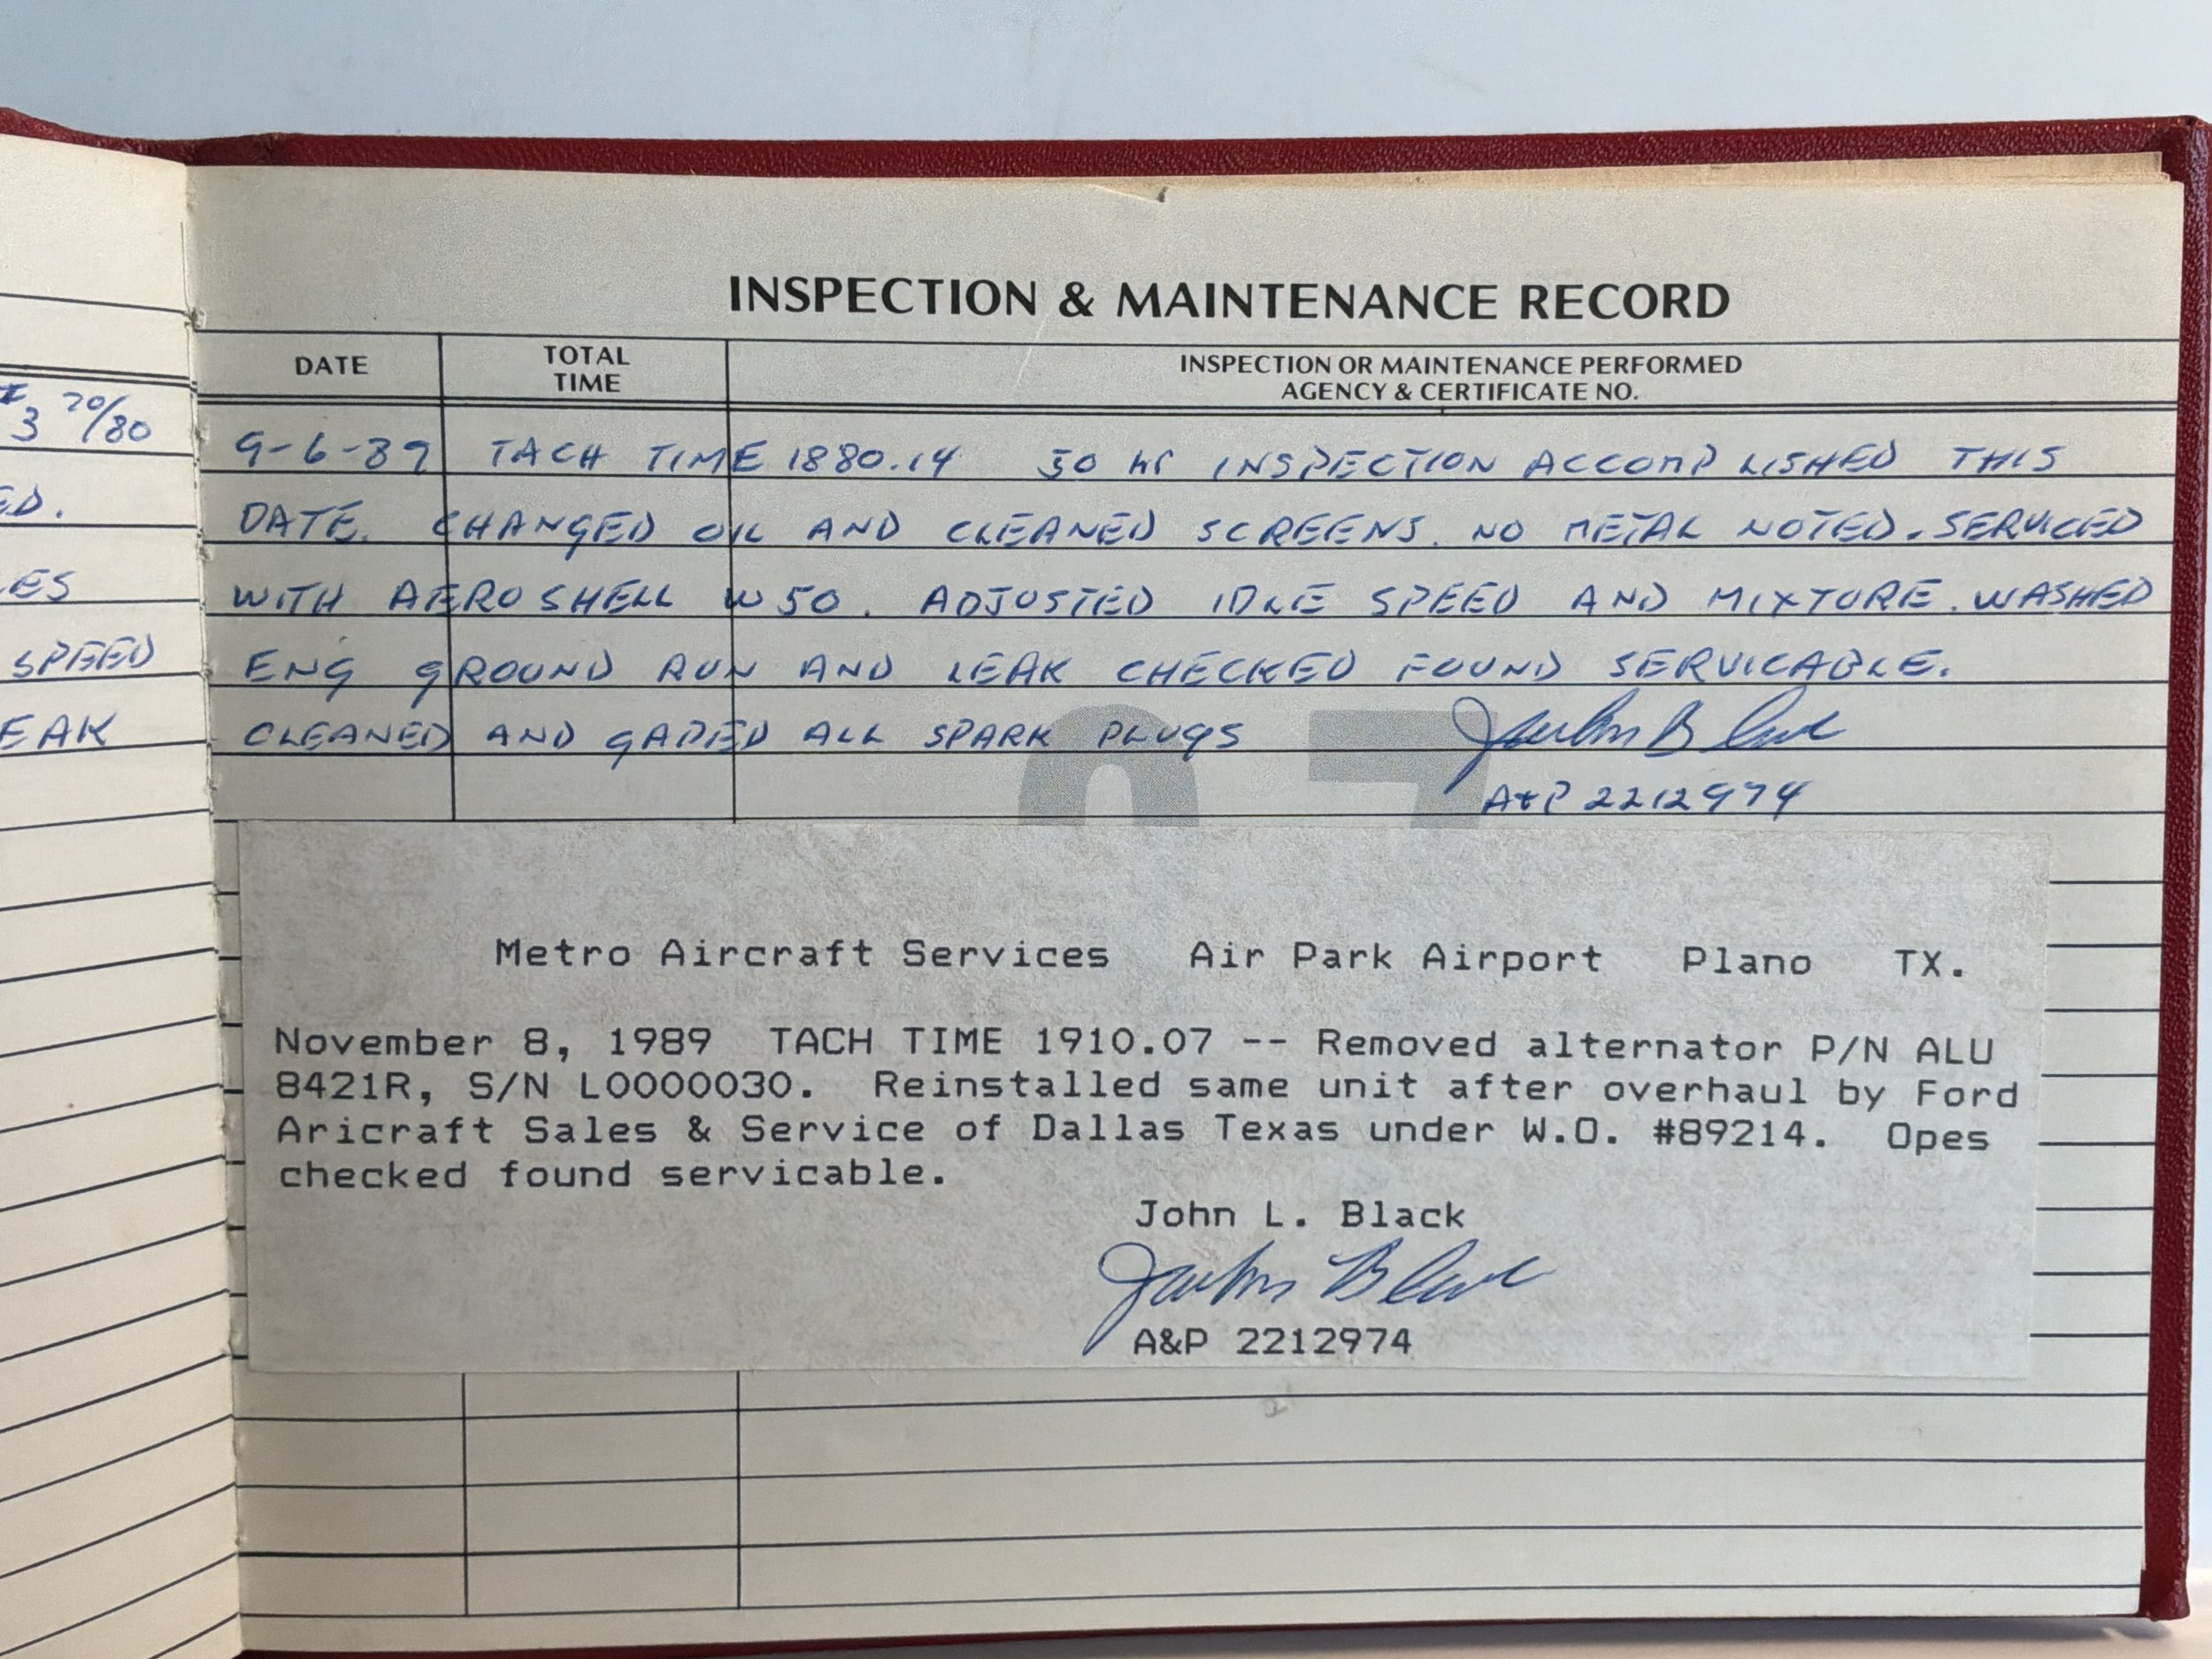 #3 70/80
ED.
LES
SPEED
EAK
INSPECTION & MAINTENANCE RECORD
DATE
TOTAL
TIME
INSPECTION OR MAINTENANCE PERFORMED
AGENCY & CERTIFICATE NO.
9-6-89 TACH TIME 1880.14 50 hr INSPECTION ACCOMPLISHED THIS
DATE. CHANGED OIL AND CLEANED SCREENS. NO METAL NOTED. SERVICED
WITH AEROSHELL W50. ADJUSTED IDLE SPEED AND MIXTURE. WASHED
ENG GROUND RUN AND LEAK CHECKED FOUND SERVICABLE.
CLEANED AND GAPED ALL SPARK PLUGS John Black
A&P 2212974
Metro Aircraft Services Air Park Airport Plano TX.
November 8, 1989 TACH TIME 1910.07 -- Removed alternator P/N ALU
8421R, S/N L0000030. Reinstalled same unit after overhaul by Ford
Aricraft Sales & Service of Dallas Texas under W.O. #89214. Opes
checked found servicable.
John L. Black
John Black
A&P 2212974